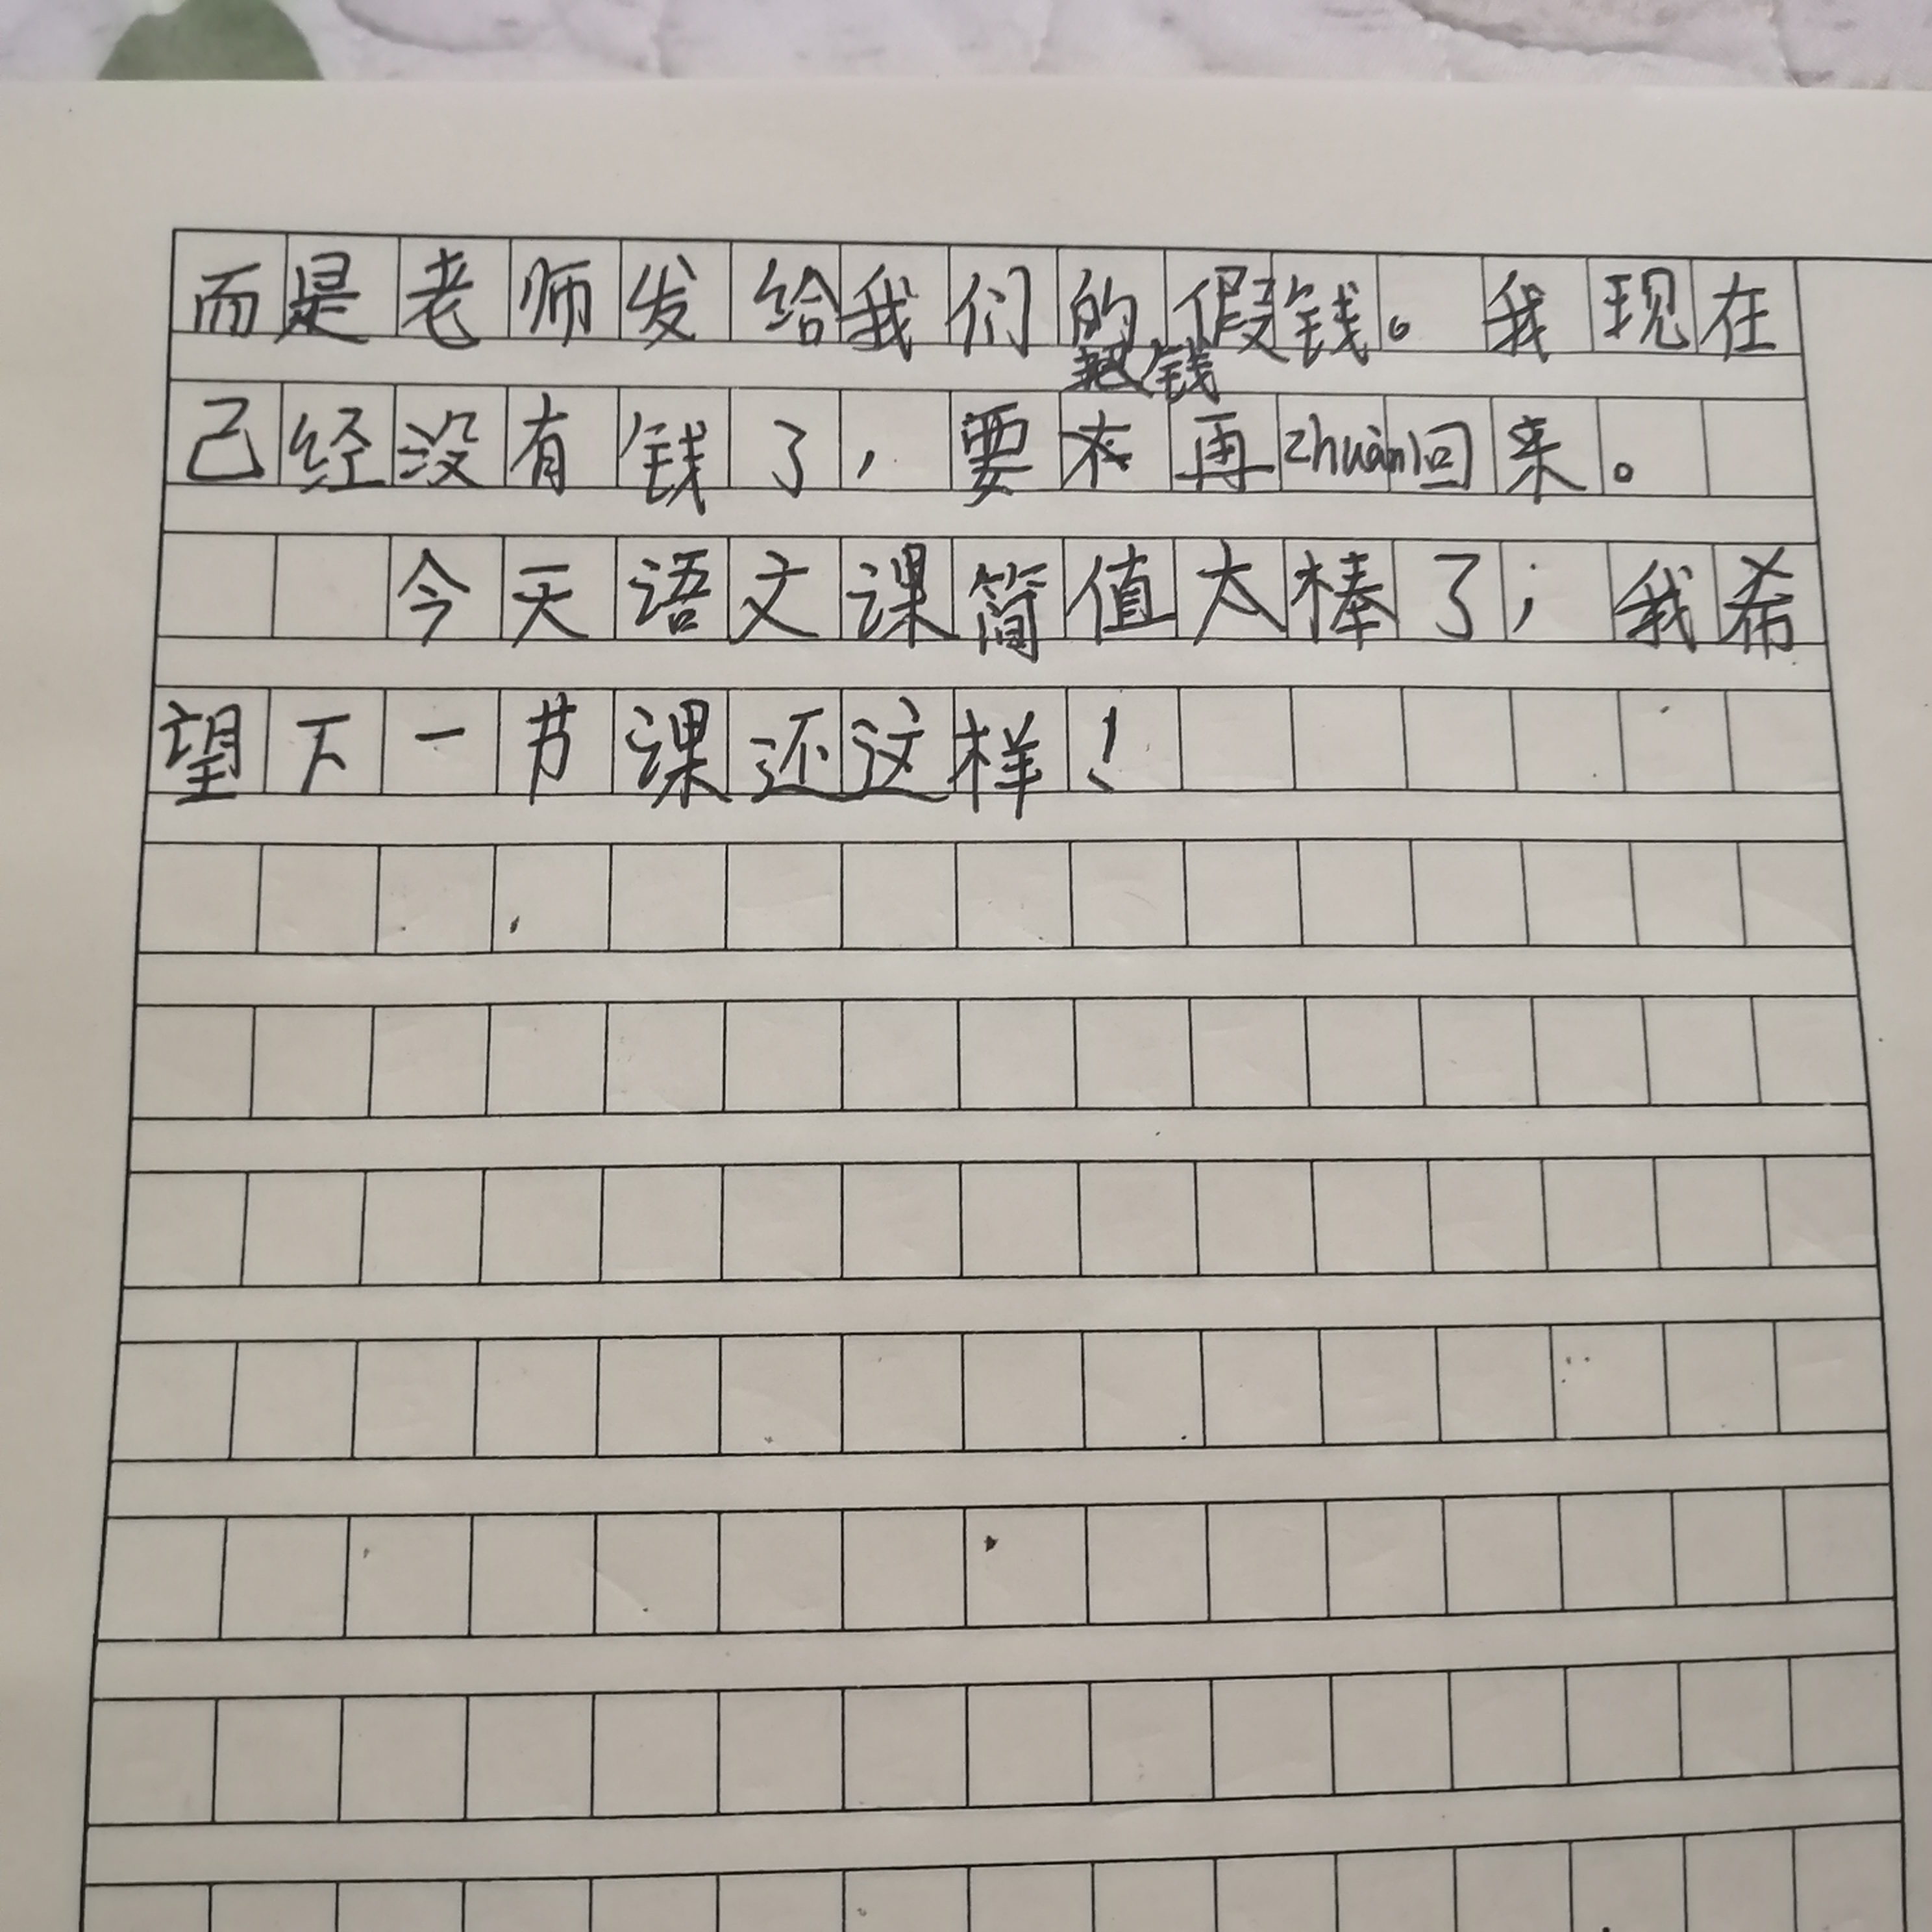 而是老师发给我们的假钱。我现在
把钱
己经没有钱了，要再zhuàn回来。
今天语文课简值太棒了；我希
望下一节课还这样！